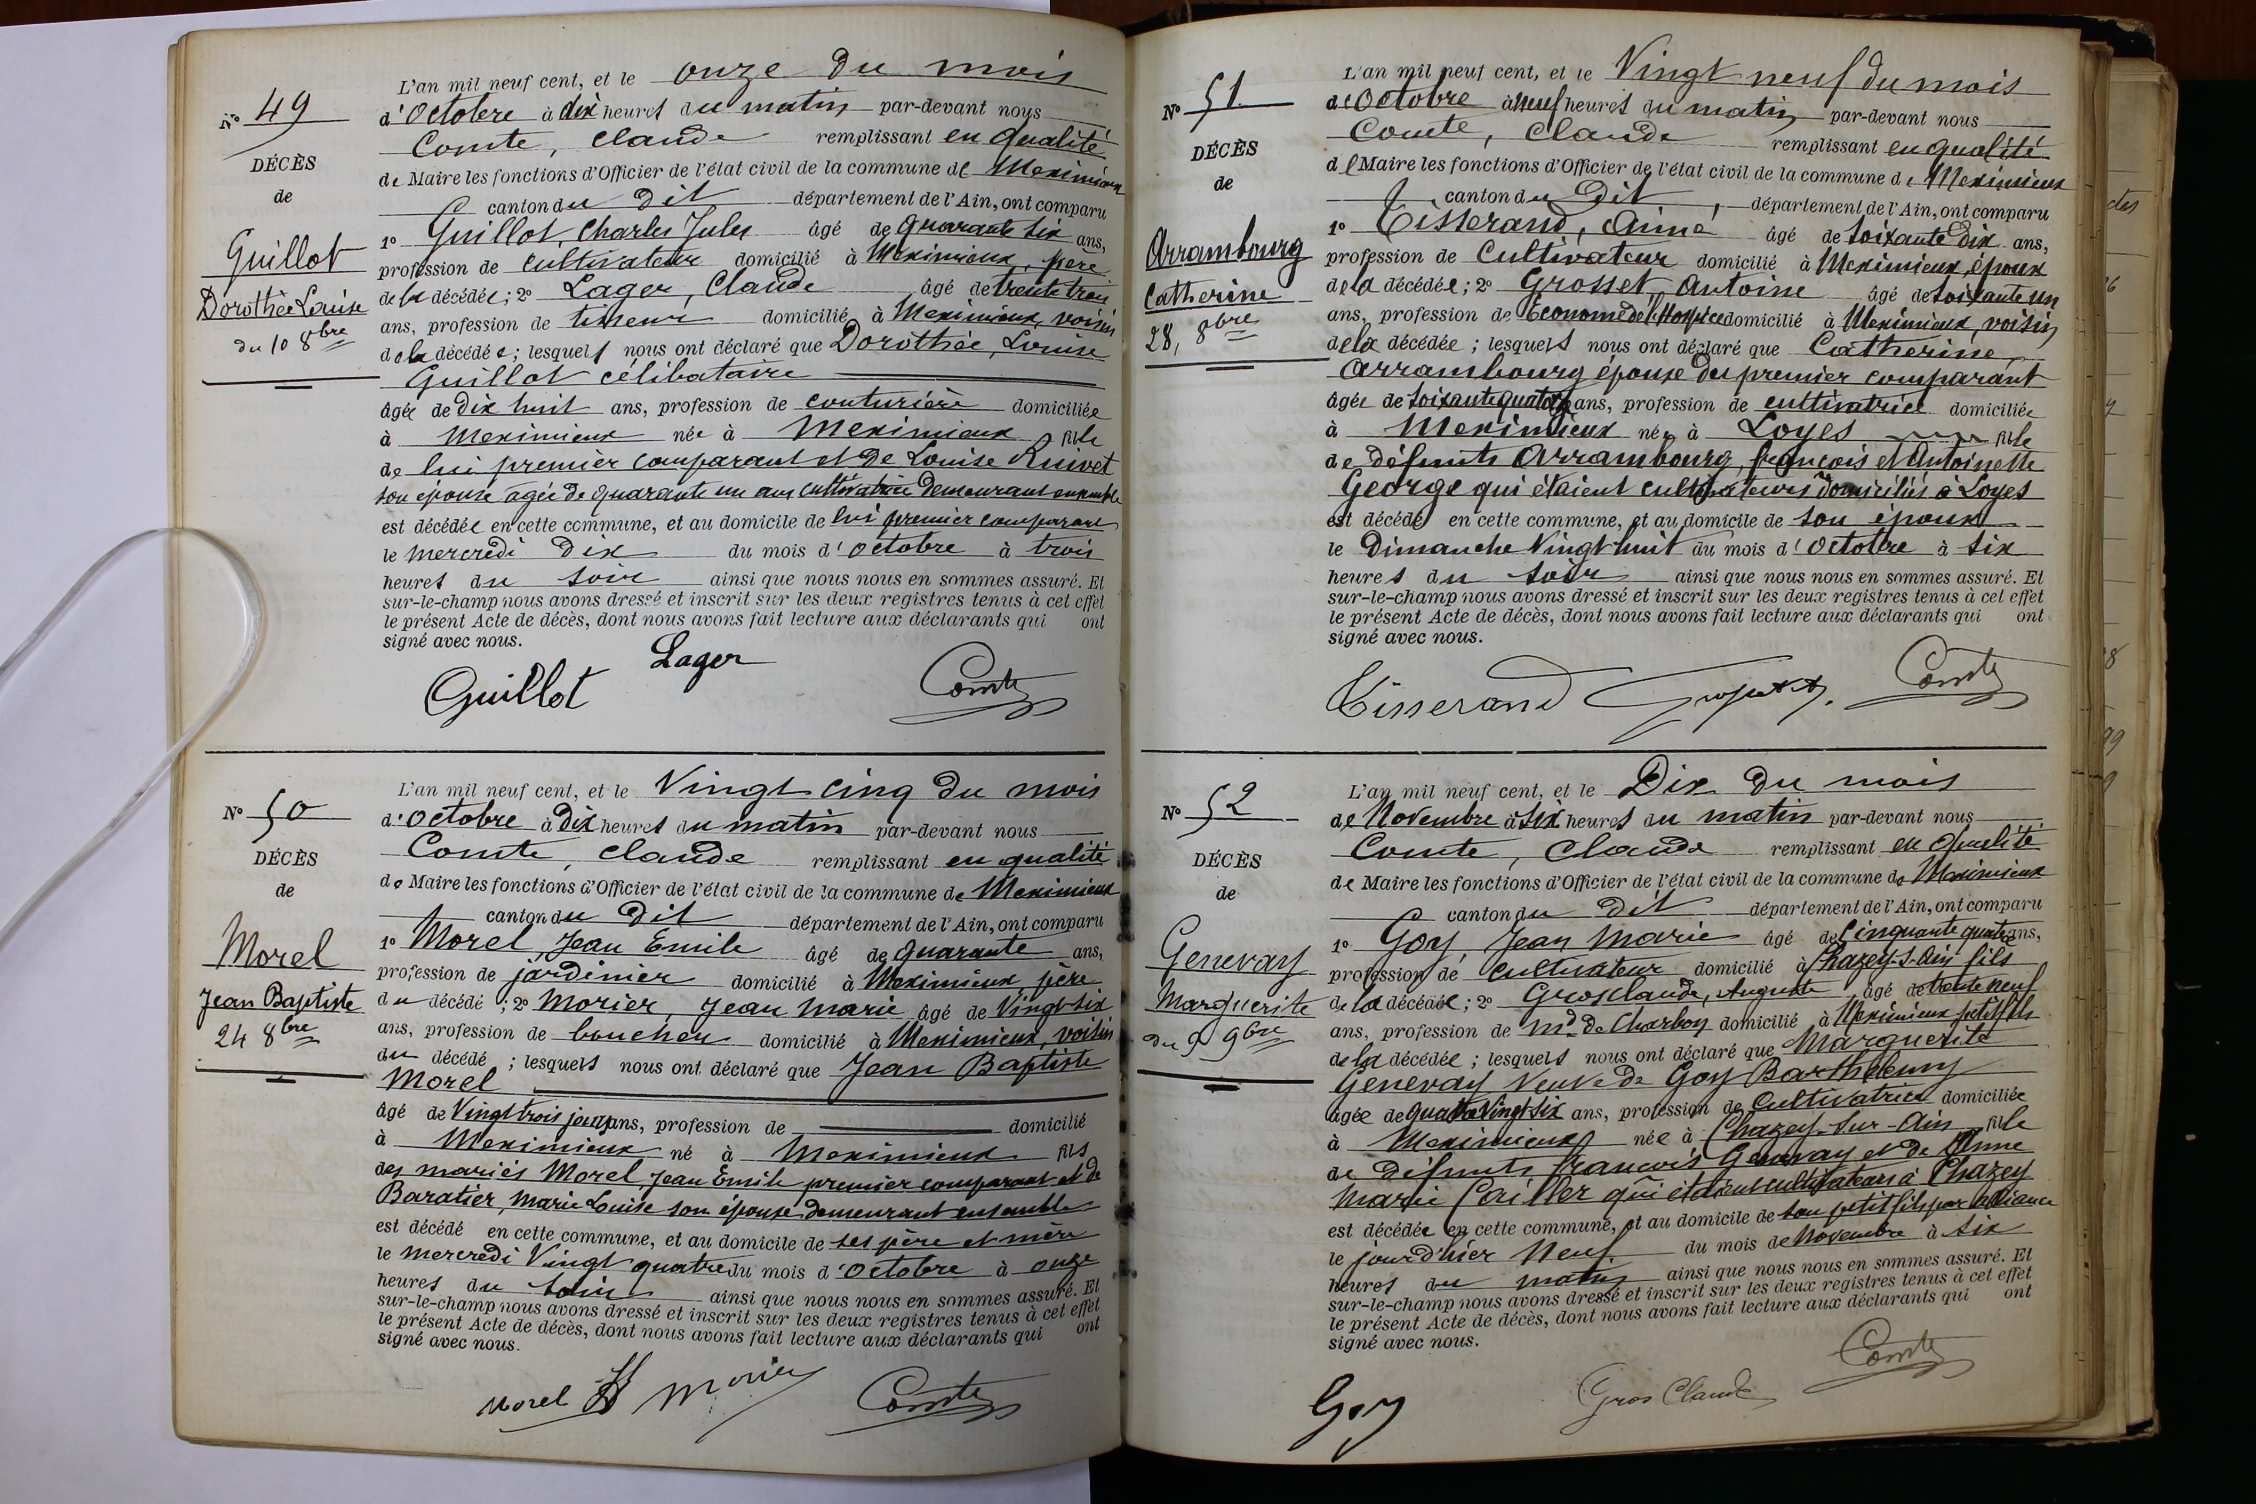 N° 49
DÉCÈS
de
Guillot
Dorothée Louise
du 10 8bre
L'an mil neuf cent, et le onze du mois
d'Octobre à dix heures du matin par-devant nous
Comte, Claude remplissant en qualité
de Maire les fonctions d'Officier de l'état civil de la commune de Meximieux
canton du dit département de l'Ain, ont comparu
1° Guillot, Charles Jules âgé de quarante six ans,
profession de cultivateur domicilié à Meximieux, père
de la décédée; 2° Lager, Claude âgé de trente trois
ans, profession de domicilié à Meximieux, voisin
de la décédée; lesquels nous ont déclaré que Dorothée, Louise
Guillot célibataire
âgée de dix huit ans, profession de couturière domiciliée
à Meximieux née à Meximieux fille
de lui premier comparant et de Louise Ruivet
son épouse agée de quarante un ans cultivatrice demeurant ensemble
est décédée en cette commune, et au domicile de lui premier comparant
le mercredi dix du mois d'octobre à trois
heures du soir ainsi que nous nous en sommes assuré. Et
sur-le-champ nous avons dressé et inscrit sur les deux registres tenus à cet effet
le présent Acte de décès, dont nous avons fait lecture aux déclarants qui ont
signé avec nous.
Guillot Lager Comte
N° 50
DÉCÈS
de
Morel
Jean Baptiste
24 8bre
L'an mil neuf cent, et le Vingt cinq du mois
d'Octobre à Dix heures du matin par-devant nous
Comte, Claude remplissant en qualité
de Maire les fonctions d'Officier de l'état civil de la commune de Meximieux
canton du dit département de l'Ain, ont comparu
1° Morel, Jean Emile âgé de quarante ans,
profession de jardinier domicilié à Meximieux, père
du décédé; 2° Morier, Jean Marie âgé de Vingt six
ans, profession de boucher domicilié à Meximieux, voisin
du décédé; lesquels nous ont déclaré que Jean Baptiste
Morel
âgé de Vingt trois jours ans, profession de domicilié
à Meximieux né à Meximieux fils
des mariés Morel, Jean Emile premier comparant et de
Baratier, Marie Louise son épouse demeurant ensemble
est décédé en cette commune, et au domicile de ses père et mère
le mercredi Vingt quatre du mois d'Octobre à onze
heures du soir ainsi que nous nous en sommes assuré. Et
sur-le-champ nous avons dressé et inscrit sur les deux registres tenus à cet effet
le présent Acte de décès, dont nous avons fait lecture aux déclarants qui ont
signé avec nous.
Morel Morier Comte
N° 51
DÉCÈS
de
Arrambourg
Catherine
28, 8bre
L'an mil neuf cent, et le Vingt neuf du mois
d'Octobre à neuf heures du matin par-devant nous
Comte, Claude remplissant en qualité
de Maire les fonctions d'Officier de l'état civil de la commune de Meximieux
canton du Dit, département de l'Ain, ont comparu
1° Tisserand, Aimé âgé de soixante dix ans,
profession de Cultivateur domicilié à Meximieux, époux
de la décédée; 2° Grosset, Antoine âgé de soixante un
ans, profession de Econome de l'Hospice domicilié à Meximieux, voisin
de la décédée; lesquels nous ont déclaré que Catherine
Arrambourg épouse du premier comparant
âgée de soixante quatorze ans, profession de cultivatrice domiciliée
à Meximieux née à Loyes fille
de défunts Arrambourg, françois et Antoinette
George qui étaient cultivateurs domiciliés à Loyes
est décédée en cette commune, et au domicile de son époux
le Dimanche Vingt huit du mois d'Octobre à six
heures du soir ainsi que nous nous en sommes assuré. Et
sur-le-champ nous avons dressé et inscrit sur les deux registres tenus à cet effet
le présent Acte de décès, dont nous avons fait lecture aux déclarants qui ont
signé avec nous.
Tisserand Comte
N° 52
DÉCÈS
de
Genevay
Marguerite
du 9 9bre
L'an mil neuf cent, et le Dix du mois
de Novembre à six heures du matin par-devant nous
Comte, Claude remplissant en qualité
de Maire les fonctions d'Officier de l'état civil de la commune de Meximieux
canton du dit département de l'Ain, ont comparu
1° Goy, Jean Marie âgé de Cinquante quatre ans,
profession de Cultivateur domicilié à Chazey-s-Ain fils
de la décédée; 2° Grosclaude, Auguste âgé de trente neuf
ans, profession de Md de Charbon domicilié à Meximieux petit fils
de la décédée; lesquels nous ont déclaré que Marguerite
Genevay Veuve de Goy Barthélemy
âgée de quatre Vingt six ans, profession de Cultivatrice domiciliée
à Meximieux née à Chazey-sur-Ain fille
de défunts François Genevay et de Anne
Marie Cailler qui étaient cultivateurs à Chazey
est décédée en cette commune, et au domicile de son petit fils par alliance
le jour d'hier Neuf du mois de Novembre à six
heures du matin ainsi que nous nous en sommes assuré. Et
sur-le-champ nous avons dressé et inscrit sur les deux registres tenus à cet effet
le présent Acte de décès, dont nous avons fait lecture aux déclarants qui ont
signé avec nous.
Goy Gros Claude Comte